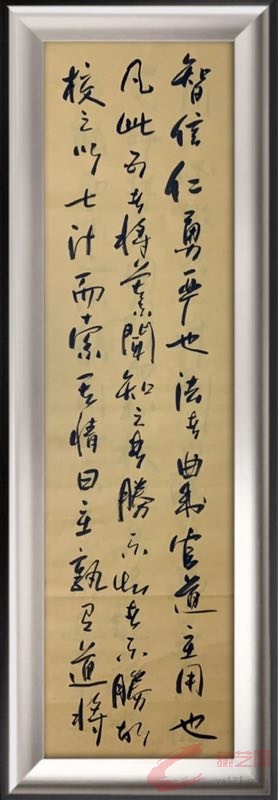 智信仁勇严也法者曲制官道主用也
凡此五者将莫闻知之者胜不知者不胜故
校之以七计而索其情曰主孰有道将